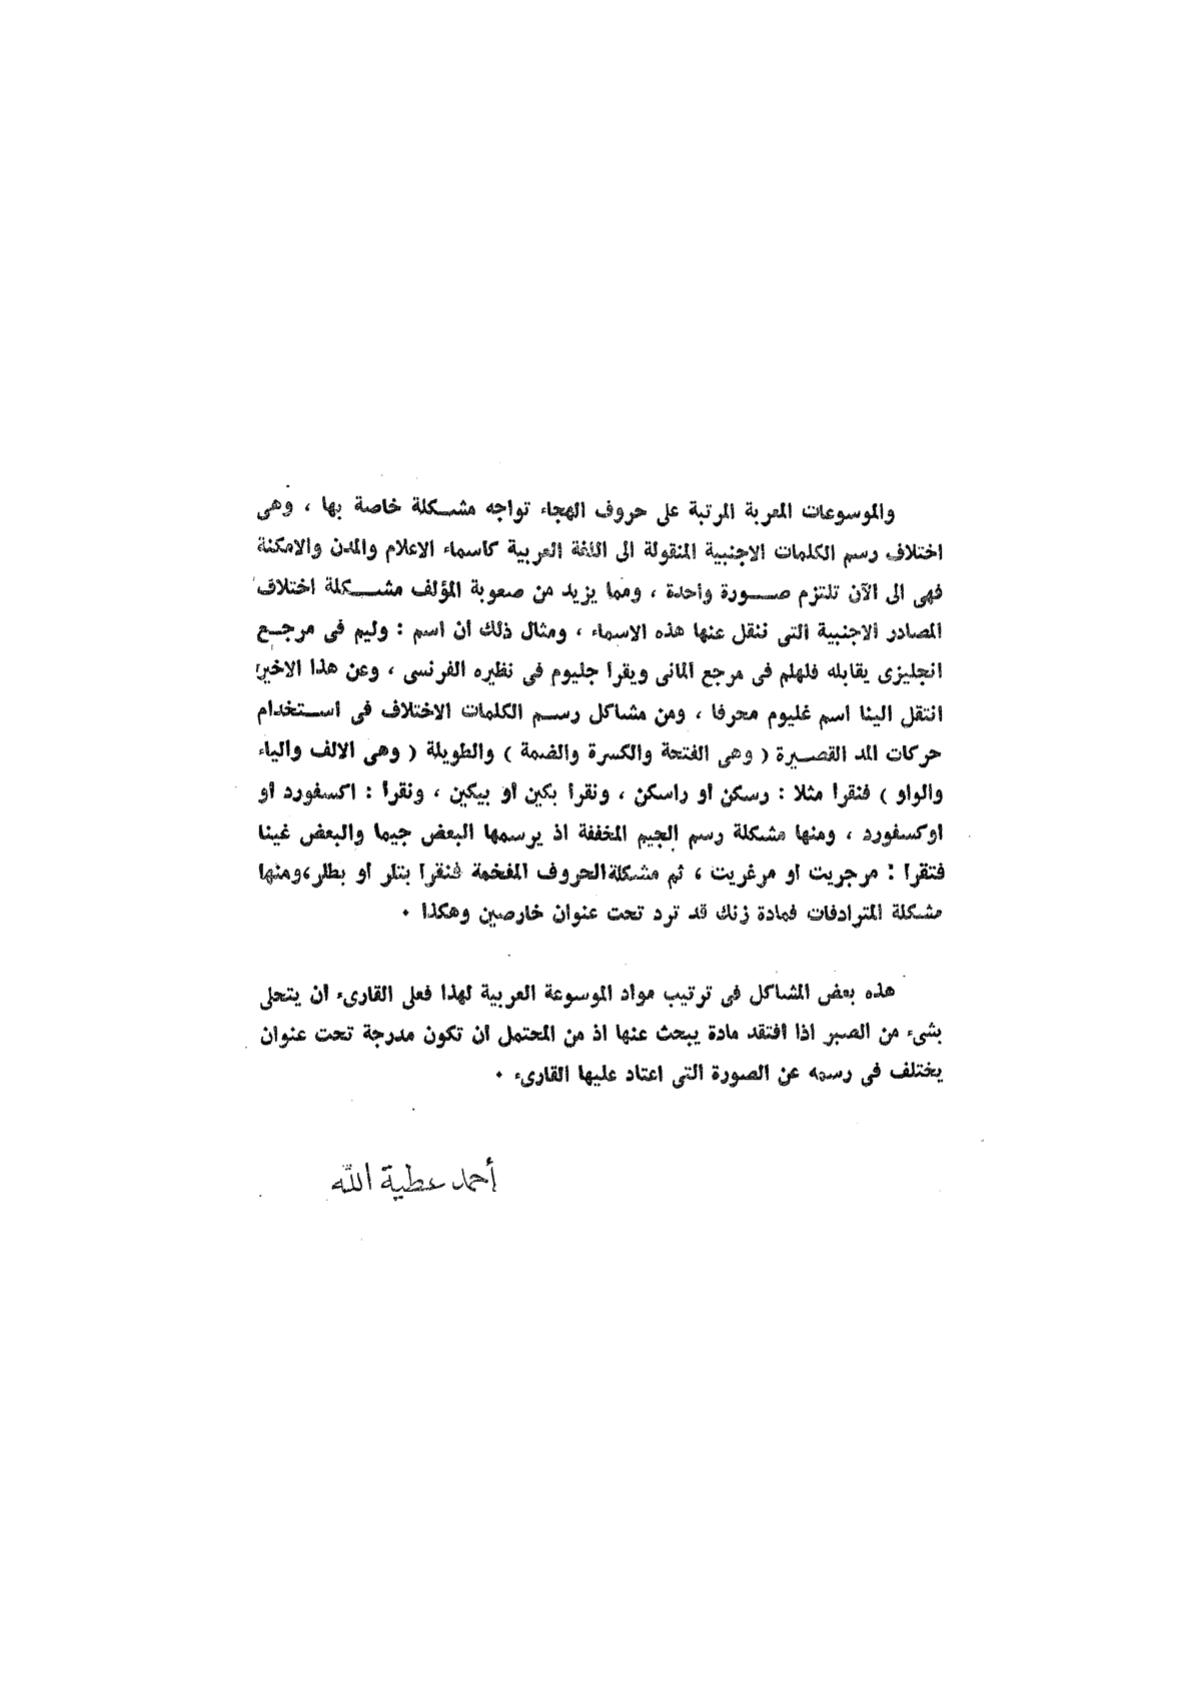 والموسوعات المعربة المرتبة على حروف الهجاء تواجه مشكلة خاصة بها ، وهى
اختلاف رسم الكلمات الاجنبية المنقولة الى اللغة العربية كاسماء الاعلام والمدن والامكنة
فهى الى الآن تلتزم صورة واحدة ، ومما يزيد من صعوبة المؤلف مشكلة اختلاف
المصادر الاجنبية التى ننقل عنها هذه الاسماء ، ومثال ذلك ان اسم : وليم فى مرجع
انجليزى يقابله فلهلم فى مرجع المانى ويقرا جليوم فى نظيره الفرنسى ، وعن هذا الاخير
انتقل الينا اسم غليوم محرفا ، ومن مشاكل رسم الكلمات الاختلاف فى استخدام
حركات المد القصيرة ( وهى الفتحة والكسرة والضمة ) والطويلة ( وهى الالف والياء
والواو ) فنقرا مثلا : رسكن او راسكن ، ونقرا بكين او بيكين ، ونقرا : اكسفورد او
اوكسفورد ، ومنها مشكلة رسم الجيم المخففة اذ يرسمها البعض جيما والبعض غينا
فتقرا : مرجريت او مرغريت ، ثم مشكلة الحروف المفخمة فنقرا بتلر او بطلر، ومنها
مشكلة المترادفات فمادة زنك قد ترد تحت عنوان خارصين وهكذا ٠
هذه بعض المشاكل فى ترتيب مواد الموسوعة العربية لهذا فعلى القارىء ان يتحلى
بشىء من الصبر اذا افتقد مادة يبحث عنها اذ من المحتمل ان تكون مدرجة تحت عنوان
يختلف فى رسمه عن الصورة التى اعتاد عليها القارىء ٠
أحمد عطية الله